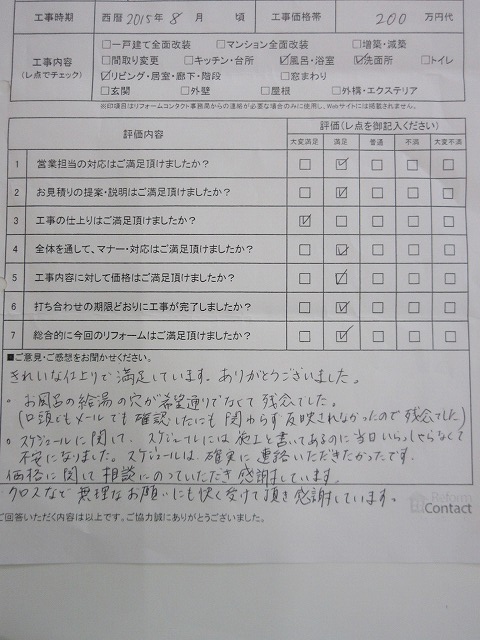 工事時期 西暦 2015年 8 月 頃 工事価格帯 200 万円代
工事内容
(レ点でチェック)
□一戸建て全面改装 □マンション全面改装 □増築・減築
□間取り変更 □キッチン・台所 ☑風呂・浴室 ☑洗面所 □トイレ
☑リビング・居室・廊下・階段 □窓まわり
□玄関 □外壁 □屋根 □外構・エクステリア
※印項目はリフォームコンタクト事務局からの連絡が必要な場合のみに使用し、Webサイトには掲載されません。
評価内容 評価(レ点を御記入ください)
大変満足 満足 普通 不満 大変不満
1 営業担当の対応はご満足頂けましたか? □ ☑ □ □ □
2 お見積りの提案・説明はご満足頂けましたか? □ ☑ □ □ □
3 工事の仕上りはご満足頂けましたか? ☑ □ □ □ □
4 全体を通して、マナー・対応はご満足頂けましたか? □ ☑ □ □ □
5 工事内容に対して価格はご満足頂けましたか? □ ☑ □ □ □
6 打ち合わせの期限どおりに工事が完了しましたか? □ ☑ □ □ □
7 総合的に今回のリフォームはご満足頂けましたか? □ ☑ □ □ □
■ご意見・ご感想をお聞かせください。
きれいな仕上りで満足しています。ありがとうございました。
・お風呂の給湯の穴が希望通りでなくて残念でした。
(口頭でもメールでも確認したにも関わらず反映されなかったので残念でした)
○スケジュールに関して、スケジュールには施工と書いてあるのに当日いらっしゃらなくて
不安になりました。スケジュールは確実に連絡いただきたかったです。
価格に関して相談にのっていただき感謝しています。
クロスなど無理なお願いにも快く受けて頂き感謝しています。
Reform
Contact
ご回答いただく内容は以上です。ご協力誠にありがとうございました。